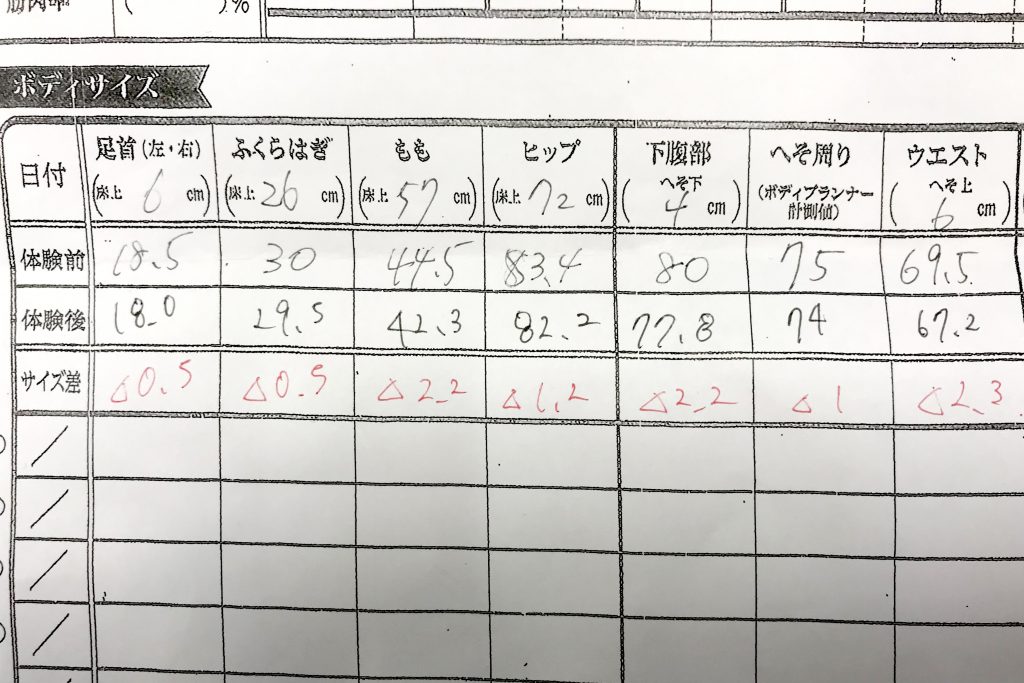 ( )%
ボディサイズ
日付 足首(左・右) ふくらはぎ もも ヒップ 下腹部 へそ周り ウエスト
(床上 6 cm) (床上 26 cm) (床上 57 cm) (床上 72 cm) (へそ下 4 cm) (ボディプランナー計測値) (へそ上 6 cm)
体験前 18.5 30 44.5 83.4 80 75 69.5
体験後 18.0 29.5 42.3 82.2 77.8 74 67.2
サイズ差 △0.5 △0.5 △2.2 △1.2 △2.2 △1 △2.3
/
/
/
/